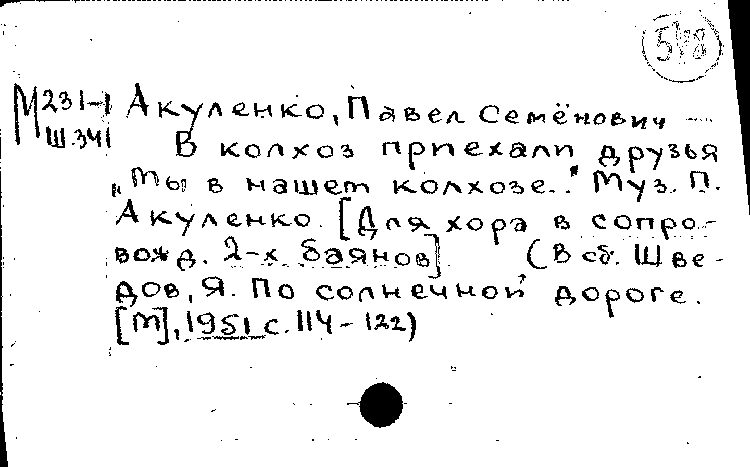 М 231-1
Ш.341
Акуленко, Павел Семёнович
В колхоз приехали друзья
„Мы в нашем колхозе.." Муз. П.
Акуленко. [Для хора в сопро-
вожд. 2-х баянов] (В сб. Шве-
дов, Я. По солнечной дороге.
[М], 1951 с. 114-122)